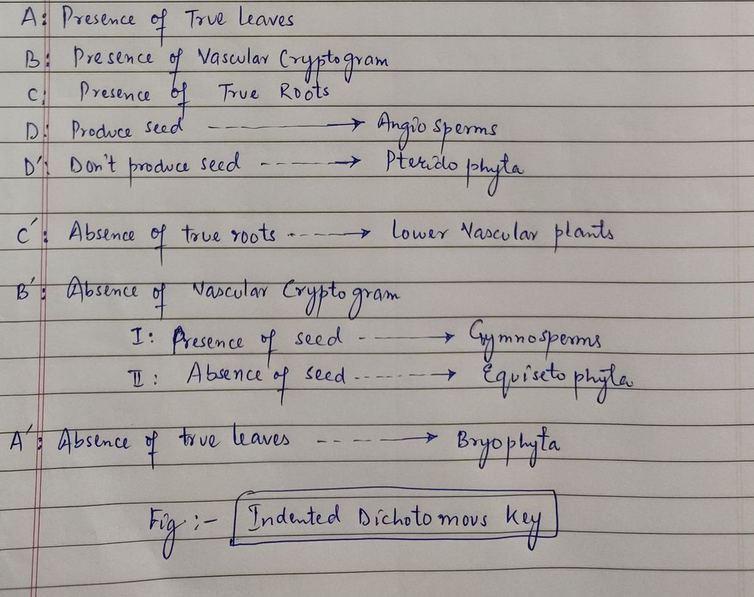 A: Presence of True Leaves
B: Presence of Vascular Cryptogram
C: Presence of True Roots
D: Produce seed -----→ Angiosperms
D': Don't produce seed ----→ Pteridophyta
C': Absence of true roots ----→ Lower Vascular plants
B': Absence of Vascular Cryptogram
I: Presence of seed ----→ Gymnosperms
II: Absence of seed -----→ Equisetophyta
A': Absence of true leaves ----→ Bryophyta
Fig :- Indented Dichotomous Key